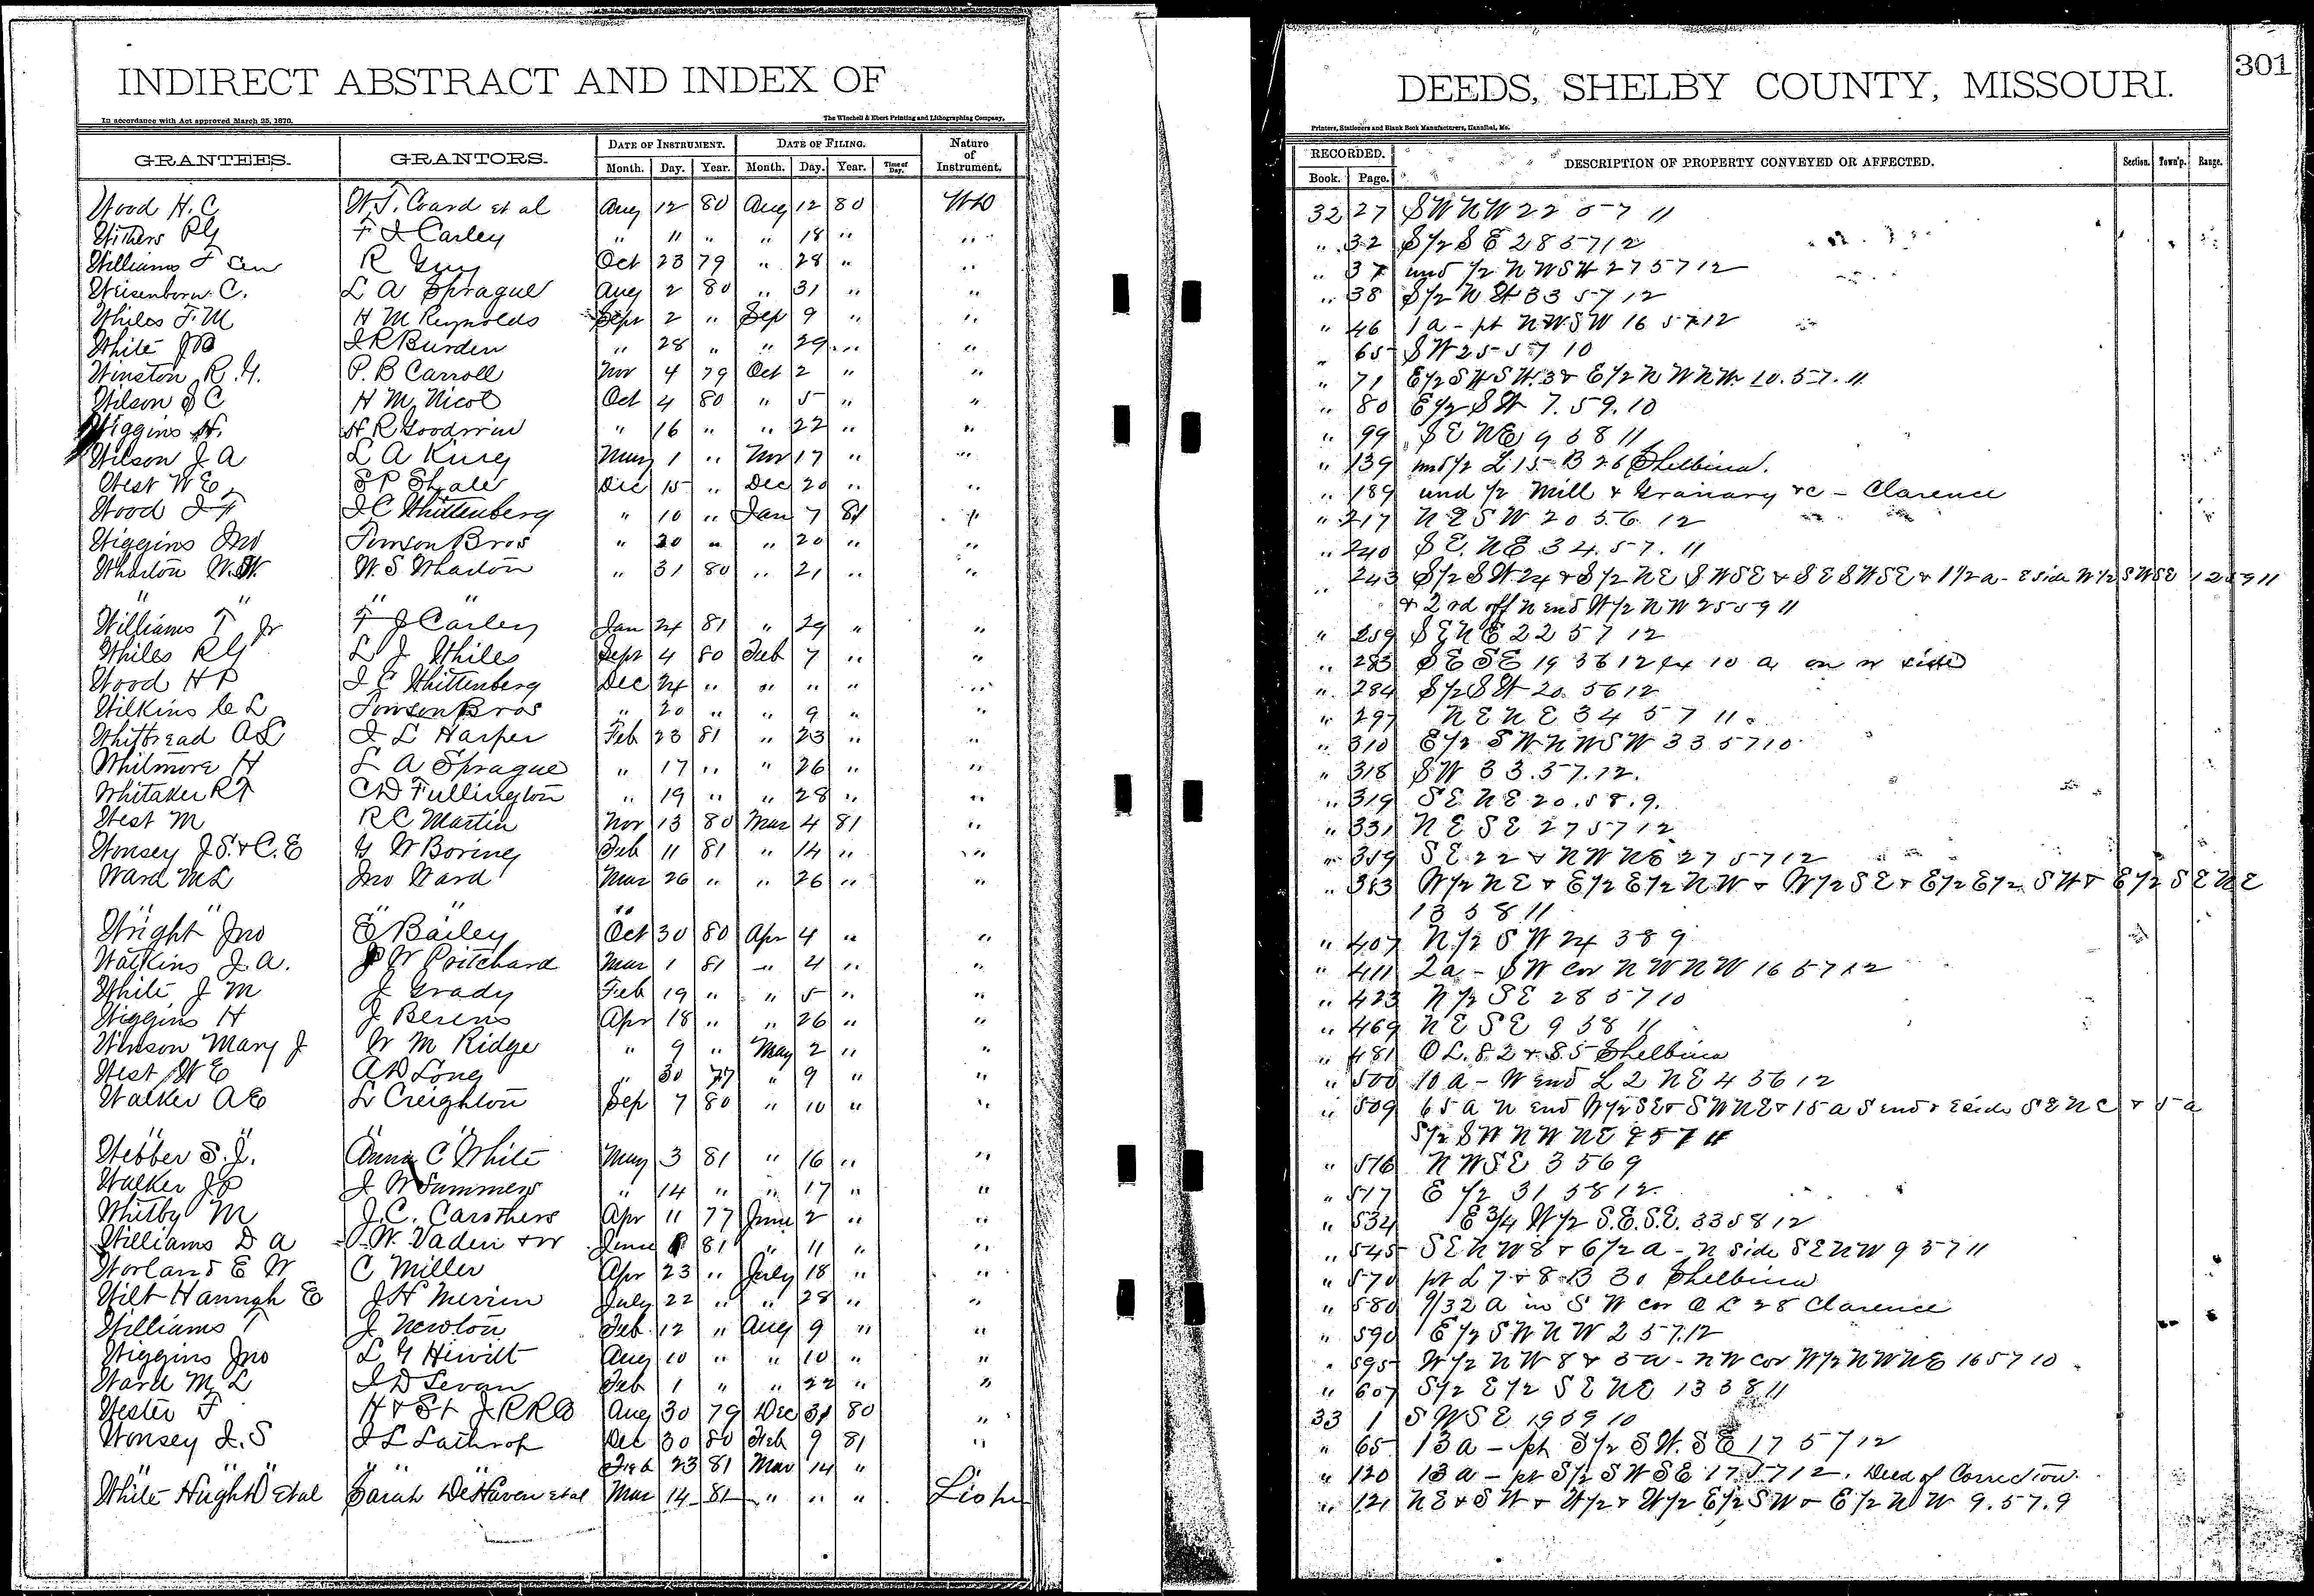 INDIRECT ABSTRACT AND INDEX OF
In accordance with Act approved March 25, 1870.
The Winchell & Ebert Printing and Lithographing Company,
GRANTEES. GRANTORS. DATE OF INSTRUMENT. DATE OF FILING. Nature of Instrument.
Month. Day. Year. Month. Day. Year. Time of Day.
DEEDS, SHELBY COUNTY, MISSOURI.
301
Printers, Stationers and Blank Book Manufacturers, Hannibal, Mo.
RECORDED. DESCRIPTION OF PROPERTY CONVEYED OR AFFECTED. Section. Town'p. Range.
Book. Page.
Wood H. C W. T. Coard et al Aug 12 80 Aug 12 80 WD 32 27 SW NW 22 57 11
Withers RG F J Carley " 11 " " 18 " " " 32 S 1/2 S E 28 57 12
Williams F Sen R Guy Oct 23 79 " 28 " " " 37 und 1/2 N W SW 27 57 12
Weisenborn C. L A Sprague Aug 2 80 " 31 " " " 38 S 1/2 N W 33 57 12
Whiles F. M H M Reynolds Sept 2 " Sep 9 " " " 46 1 a - pt NW SW 16 57 12
White J B J R Burden " 28 " " 29 " " " 65 S W 25 57 10
Winston R. G. P. B Carroll Nov 4 79 Oct 2 " " " 71 E 1/2 SW SW. 3 & E 1/2 N W N W 10. 57. 11
Wilson S C H M Nicol Oct 4 80 " 5 " " " 80 E 1/2 S W 7. 59. 10
Wiggins H. H R Goodwin " 16 " " 22 " " " 99 S E NE 9 58 11
Wilson J A L A King May 1 " Nov 17 " " " 139 und 1/2 L 15 B 26 Shelbina.
West W E S P Shale Dec 15 " Dec 20 " " " 189 und 1/2 Mill & Granary &c - Clarence
Wood J F J C Whittenberg " 10 " Jan 7 81 " " 217 N E S W 20 56 12
Wiggins Jno Towson Bros " 20 " " 20 " " " 240 S E. NE 34. 57. 11
Wharton W. W. W. S Wharton " 31 80 " 21 " " " 243 S 1/2 S W 24 & S 1/2 N E S W S E & S E S W S E & 1 1/2 a - E side W 1/2 S W S E 12 59 11
" " " & 2 rd off N end W 1/2 N W 25 59 11
Williams T Jr F J Carley Jan 24 81 " 29 " " " 259 S E N E 22 57 12
Whiles R G L J Whiles Sept 4 80 Feb 7 " " " 283 S E S E 19 56 12 Ex 10 a on N side
Wood H P J C Whittenberg Dec 24 " " " " " " 284 S 1/2 S W 20 56 12
Wilkins C L Towson Bros " 20 " " 9 " " " 297 N E N E 34 57 11
Whitbread A L J L Harper Feb 23 81 " 23 " " " 310 E 1/2 S W N W S W 33 57 10
Whitmore H L A Sprague " 17 " " 26 " " " 318 S W 33. 57. 12.
Whitaker R F C D Fullington " 19 " " 28 " " " 319 S E N E 20. 58. 9.
West M R C Martin Nov 13 80 Mar 4 81 " " 331 N E S E 27 57 12
Wonsey J S. & C. E G W Boring Feb 11 81 " 14 " " " 359 S E 22 & N W NE 27 57 12
Ward M L Jno Ward Mar 26 " " 26 " " " 383 W 1/2 N E & E 1/2 E 1/2 N W & W 1/2 S E & E 1/2 E 1/2 S W & E 1/2 S E N E
" " " " " 13 58 11
Wright Jno E Bailey Oct 30 80 Apr 4 " " " 407 N 1/2 S W 24 58 9
Watkins J. A. J W Pritchard Mar 1 81 " 4 " " " 411 2 a - S W cor N W N W 16 57 12
White J M J Grady Feb 19 " " 5 " " " 423 N 1/2 S E 28 57 10
Wiggins H J Berens Apr 18 " " 26 " " " 469 N E S E 9 58 11
Winson Mary J W M Ridge " 9 " May 2 " " " 481 O L. 82 & 85 Shelbina
West W E A D Long " 30 77 " 9 " " " 500 10 a - W end L 2 N E 4 56 12
Walker A E L Creighton Sep 7 80 " 10 " " " 509 65 a N end W 1/2 SE & S W N E & 15 a S end & E side S E N E & 5 a
" " " S 1/2 S W N W N E 8 57 11
Webber S. J. Anna C White May 3 81 " 16 " " " 516 N W S E 3 56 9
Walker J P J W Summers " 14 " " 17 " " " 517 E 1/2 31 58 12.
Whitby M J. C. Carothers Apr 11 77 June 2 " " " 534 E 3/4 W 1/2 S. E. S. E. 33 58 12
Williams D A W. Vaden & W June 8 81 " 11 " " " 545 S E N W 8 & 6 1/2 a - N side S E N W 9 57 11
Worland E W C Miller Apr 23 " July 18 " " " 570 pt L 7 & 8 B 30 Shelbina
Wilt Hannah E J H Merrin July 22 " " 28 " " " 580 9/32 A in S W cor O L 28 Clarence
Williams T J Newton Feb 12 " Aug 9 " " " 590 E 1/2 S W N W 2 57. 12
Wiggins Jno L G Hewitt Aug 10 " " 10 " " " 595 W 1/2 N W 8 & 3 a - N W cor W 1/2 N W N E 16 57 10
Ward M L J D Levan Feb 1 " " 22 " " " 607 S 1/2 E 1/2 S E N E 13 58 11
Wester F H & St J R R Co Aug 30 79 Dec 31 80 " 33 1 S W S E 19 59 10
Wonsey J. S J L Lathrop Dec 30 80 Feb 9 81 " " 65 13 a - pt S 1/2 S W. S E 17 57 12
" " " " Feb 23 81 Mar 14 " " 120 13 a - pt S 1/2 S W S E 17 57 12. Deed of Correction.
White Hugh D et al Sarah DeHaven et al Mar 14 81 " " " " 121 N E & S W & W 1/2 & W 1/2 E 1/2 S W & E 1/2 N W 9. 57. 9